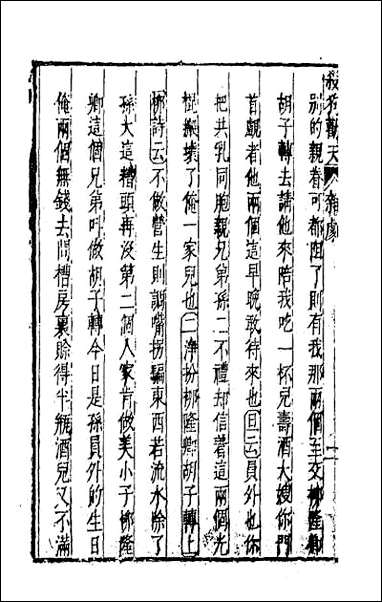 殺狗勸夫 雜劇
二
别的親眷可都阻了則有我那兩個至交柳隆卿
胡子轉去請他來陪我吃一杯兒壽酒大嫂你門
首覷者他兩個這早晚敢待來也旦云員外也你
把共乳同胞親兄弟孫二不禮却信着這兩個光
棍搬壞了俺一家兒也二淨扮柳隆卿胡子轉上
柳詩云不做營生則調嘴拐騙東西若流水除了
孫大這糟頭再没第二個人家肯做美小子柳隆
卿這個兄弟呌做胡子轉今日是孫員外的生日
俺兩個無錢去問槽房裏賒得半瓶酒兒又不滿